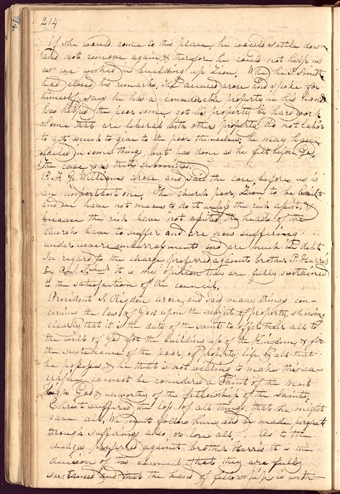 214
if she would come to this place he would settle down
and not remove again, & therefore he could not help us
as we wished in building up Zion. When he J. Smith
had closed his remarks, the accused arose and spoke for
himself, says he has a considerable property in his hands
has helped the poor some, got his property by hard work
Some that are liberal with others property do not labor
to get much to give to the poor themselves, he may have
in some things but has done as he felt before God.
The case was submitted.
P. F. G. Williams arose and said the case before us is
an important one. The church poor, Zion to be built
and we have not means to do it unless the rich assist, &
because the rich have not assisted, the heads of the
church have to suffer and are now suffering
under severe embarrassments and are much in debt.
In regard to the charge preferred against brother P.
by J. S. it is my opinion they are fully sustained
to the satisfaction of the council.
President S. Rigdon arose, and said many things con-
cerning the law of God upon the subject of property, showing
clearly that it is the duty of the saints to offer their all to
the will of God for the building up of his kingdom, & for
the sustenance of the poor, of property life & all that
he possesses, & he that is not willing to make this sa-
crifice cannot be considered a Saint of the most
high God, & unworthy of the fellowship of the saints,
Christ suffered the loss of all things, that he might
save all. We must follow him and be made perfect
through sufferings also, or lose all. As to the
charges preferred against brother Harris it is the
decision of this council, that they are fully
sustained and that the hand of fellowship is with-